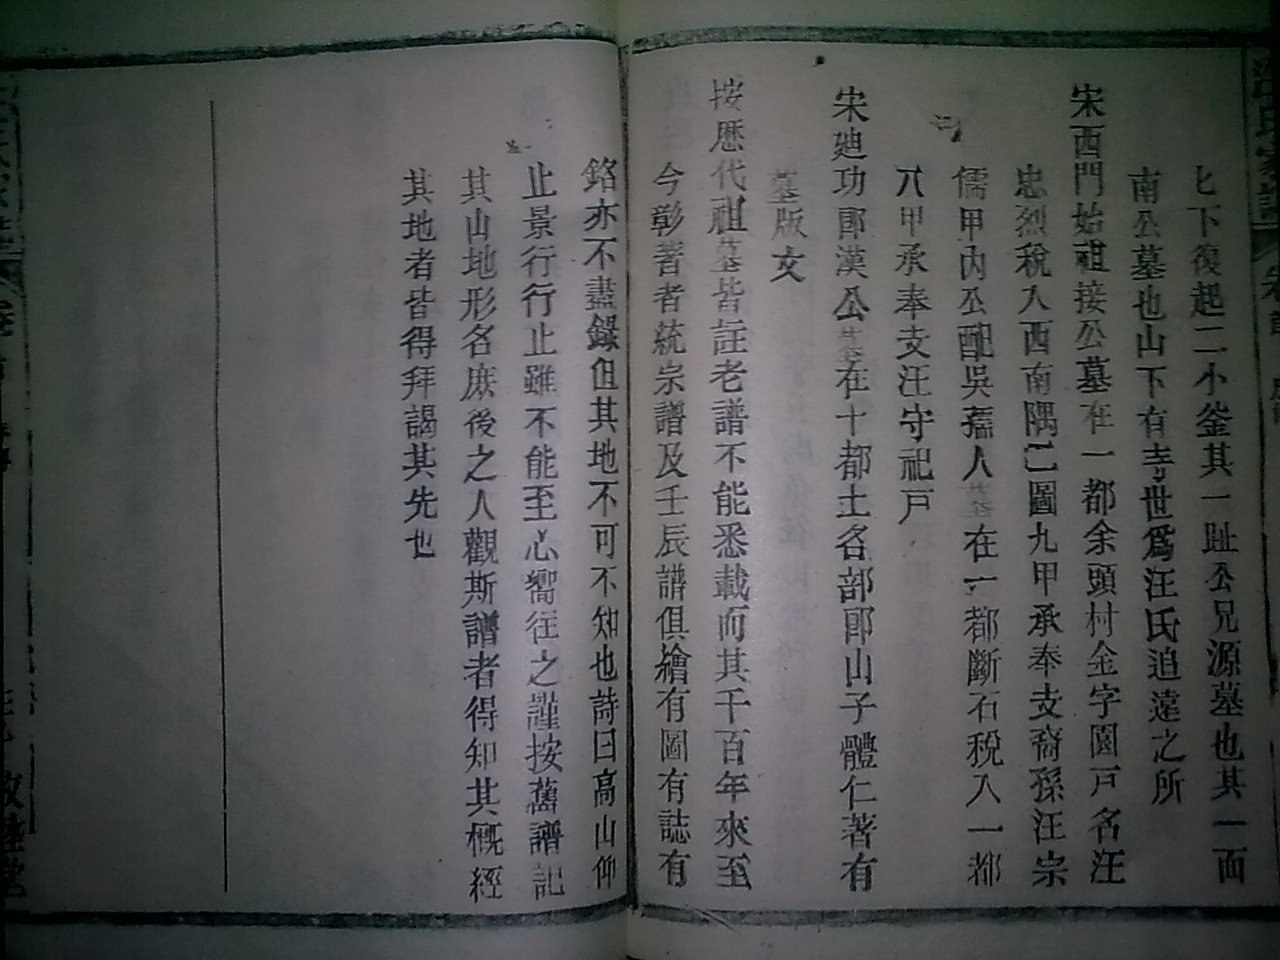 汪氏家譜
匕下復起二小釜其一趾公兄源墓也其一面
南公墓也山下有寺世爲汪氏追遠之所
宋西門始祖接公墓在一都余頭村金字園戸名汪
忠烈稅入西南隅已圖九甲承奉支裔孫汪宗
儒甲內公配吳孺人墓在一都斷石稅入一都
八甲承奉支汪守祀戸
宋廸功郎漢公墓在十都土名部郎山子體仁著有
墓版文
按歷代祖墓皆註老譜不能悉載而其千百年來至
今彰著者統宗譜及壬辰譜俱繪有圖有誌有
銘亦不盡錄但其地不可不知也詩曰高山仰
止景行行止雖不能至心嚮往之謹按舊譜記
其山地形名庶後之人觀斯譜者得知其槪經
其地者皆得拜謁其先也
敦睦堂